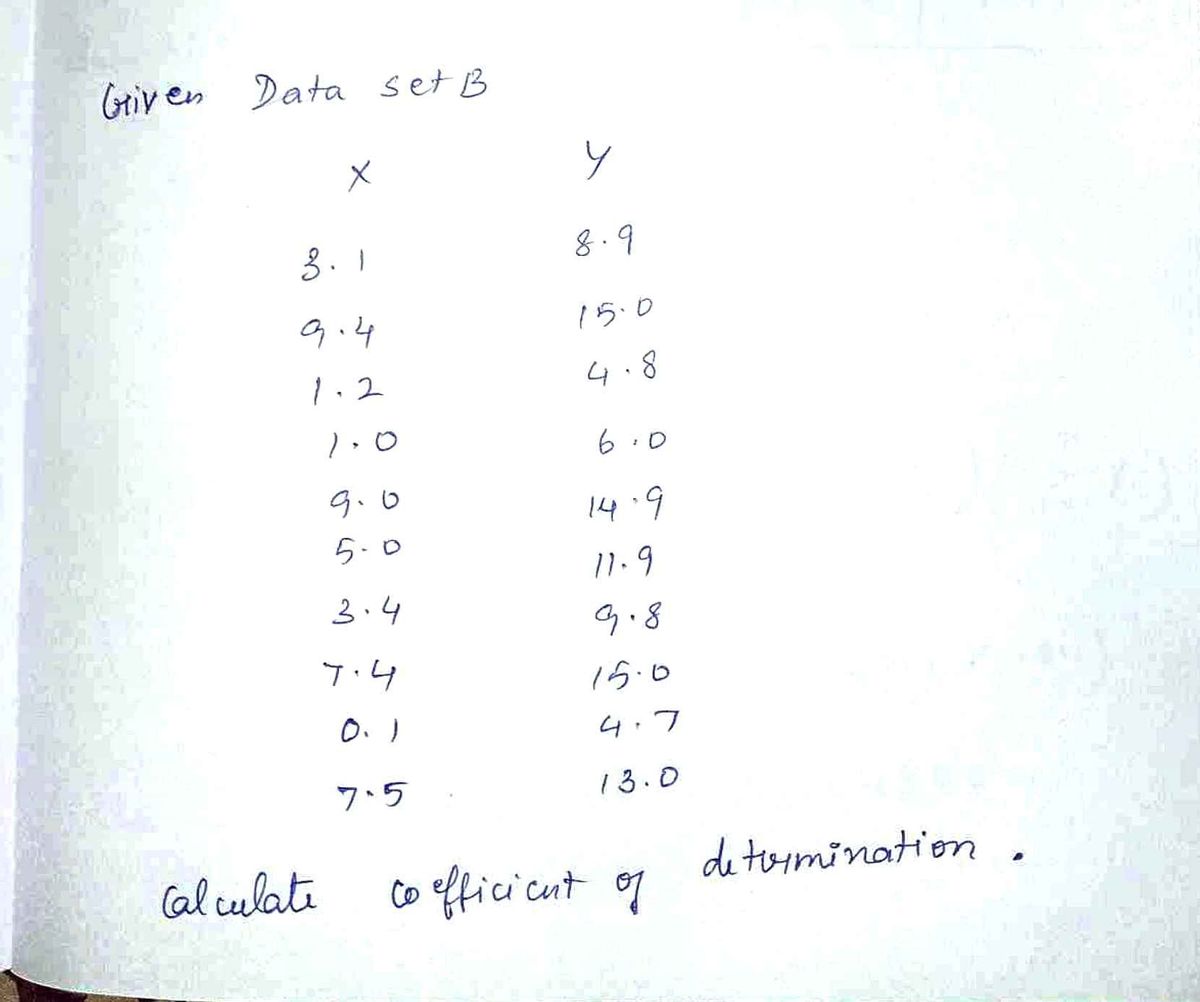 Given Data set B
x y
3.1 8.9
9.4 15.0
1.2 4.8
1.0 6.0
9.0 14.9
5.0 11.9
3.4 9.8
7.4 15.0
0.1 4.7
7.5 13.0
Calculate coefficient of determination.